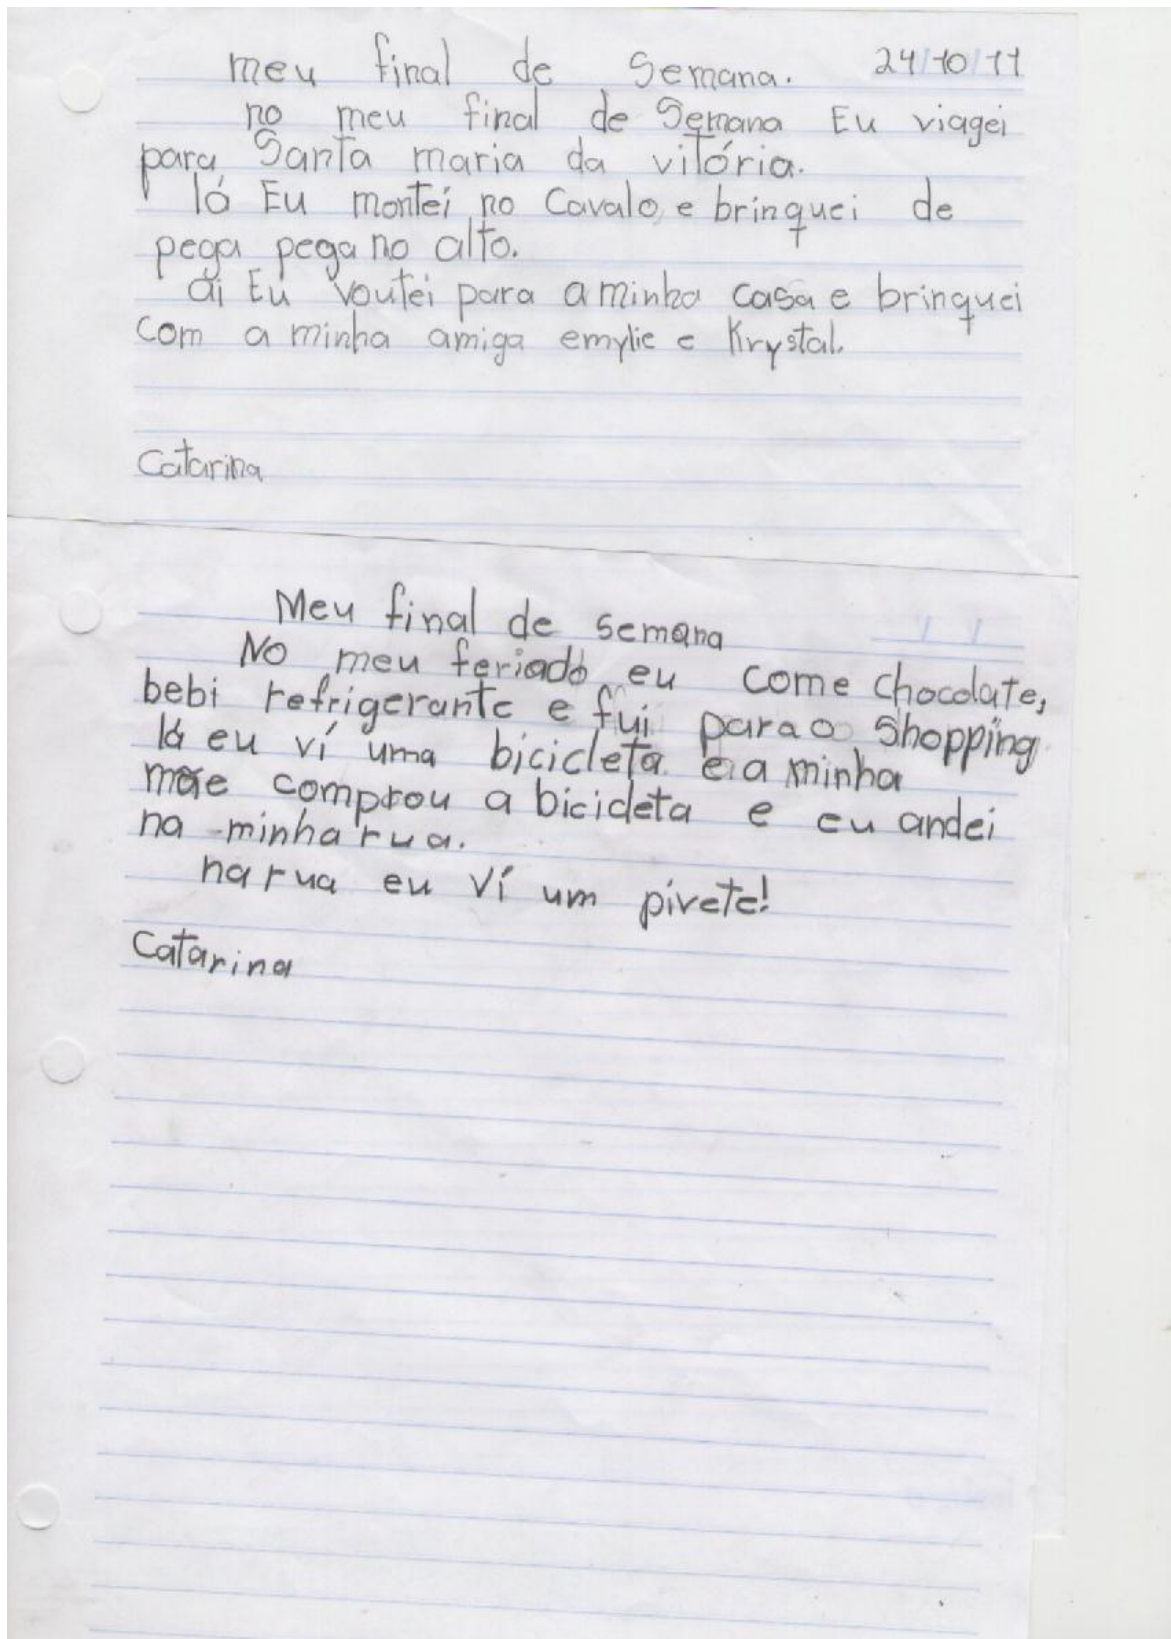 meu final de Semana. 24/10/11
no meu final de Semana Eu viagei
para Santa maria da vitória.
lá Eu montei no Cavalo, e brinquei de
pega pega no alto.
ai Eu voutei para a minha casa e brinquei
com a minha amiga emylie e Krystal.
Catarina
Meu final de semana
No meu feriado eu come chocolate,
bebi refrigerante e fui para o Shopping
lá eu ví uma bicicleta e a minha
mãe comprou a bicicleta e eu andei
na minha rua.
na rua eu ví um pivete!
Catarina